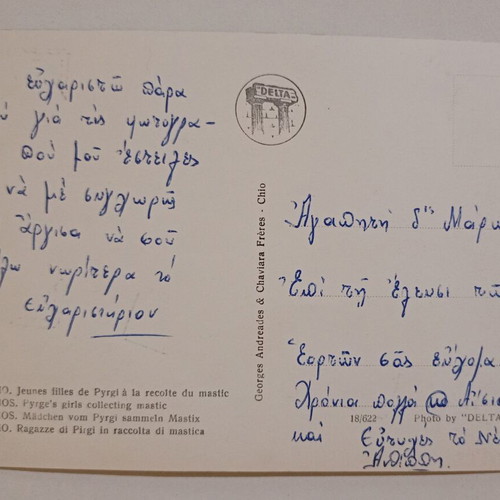 εὐχαριστῶ πάρα
γιά τίς φωτογρα-
ποὺ μοῦ ἔστειλες
νὰ μὲ συγχωρῆς
ἄργισα νὰ σοῦ
νωρίτερα τό
εὐχαριστήριον
HO. Jeunes filles de Pyrgi à la recolte du mastic
IOS. Pyrge's girls collecting mastic
IOS. Mädchen vom Pyrgi sammeln Mastix
HO. Ragazze di Pirgi in raccolta di mastica
DELTA
Georges Andreades & Chaviara Frères - Chio
Ἀγαπητή δίς Μάρω
Ἐπί τῇ ἐλεύσι τῶ
Ἑορτῶν σᾶς εὔχομα
Χρόνια πολλά κα Αἴσι
18/622 Photo by "DELTA
καί Εὐτυχές τό Νέ